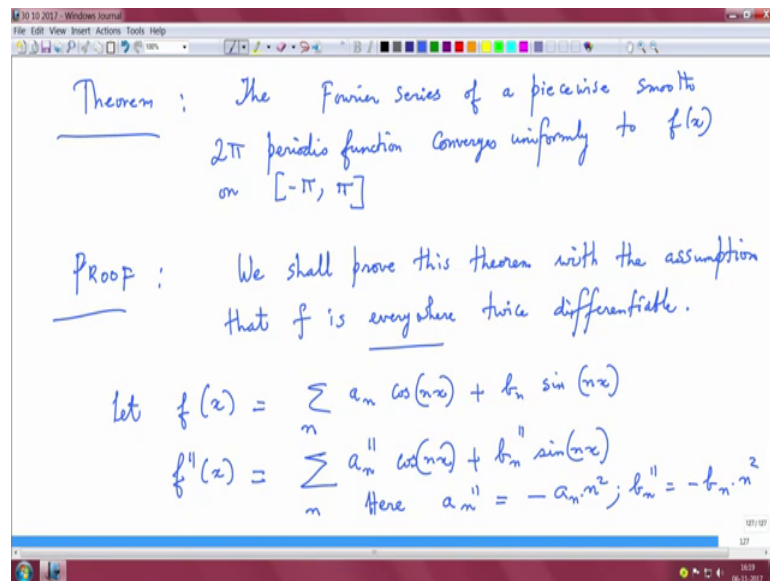 30 10 2017 - Windows Journal
File Edit View Insert Actions Tools Help
100%
Theorem : The Fourier series of a piecewise smooth
2π periodic function converges uniformly to f(x)
on [-π, π]
PROOF : We shall prove this theorem with the assumption
that f is everywhere twice differentiable.
Let f(x) = ∑ₙ aₙ cos(nx) + bₙ sin(nx)
f''(x) = ∑ₙ aₙ'' cos(nx) + bₙ'' sin(nx)
Here aₙ'' = - aₙ.n² ; bₙ'' = - bₙ.n²
127/127
127
16:19
06-11-2017